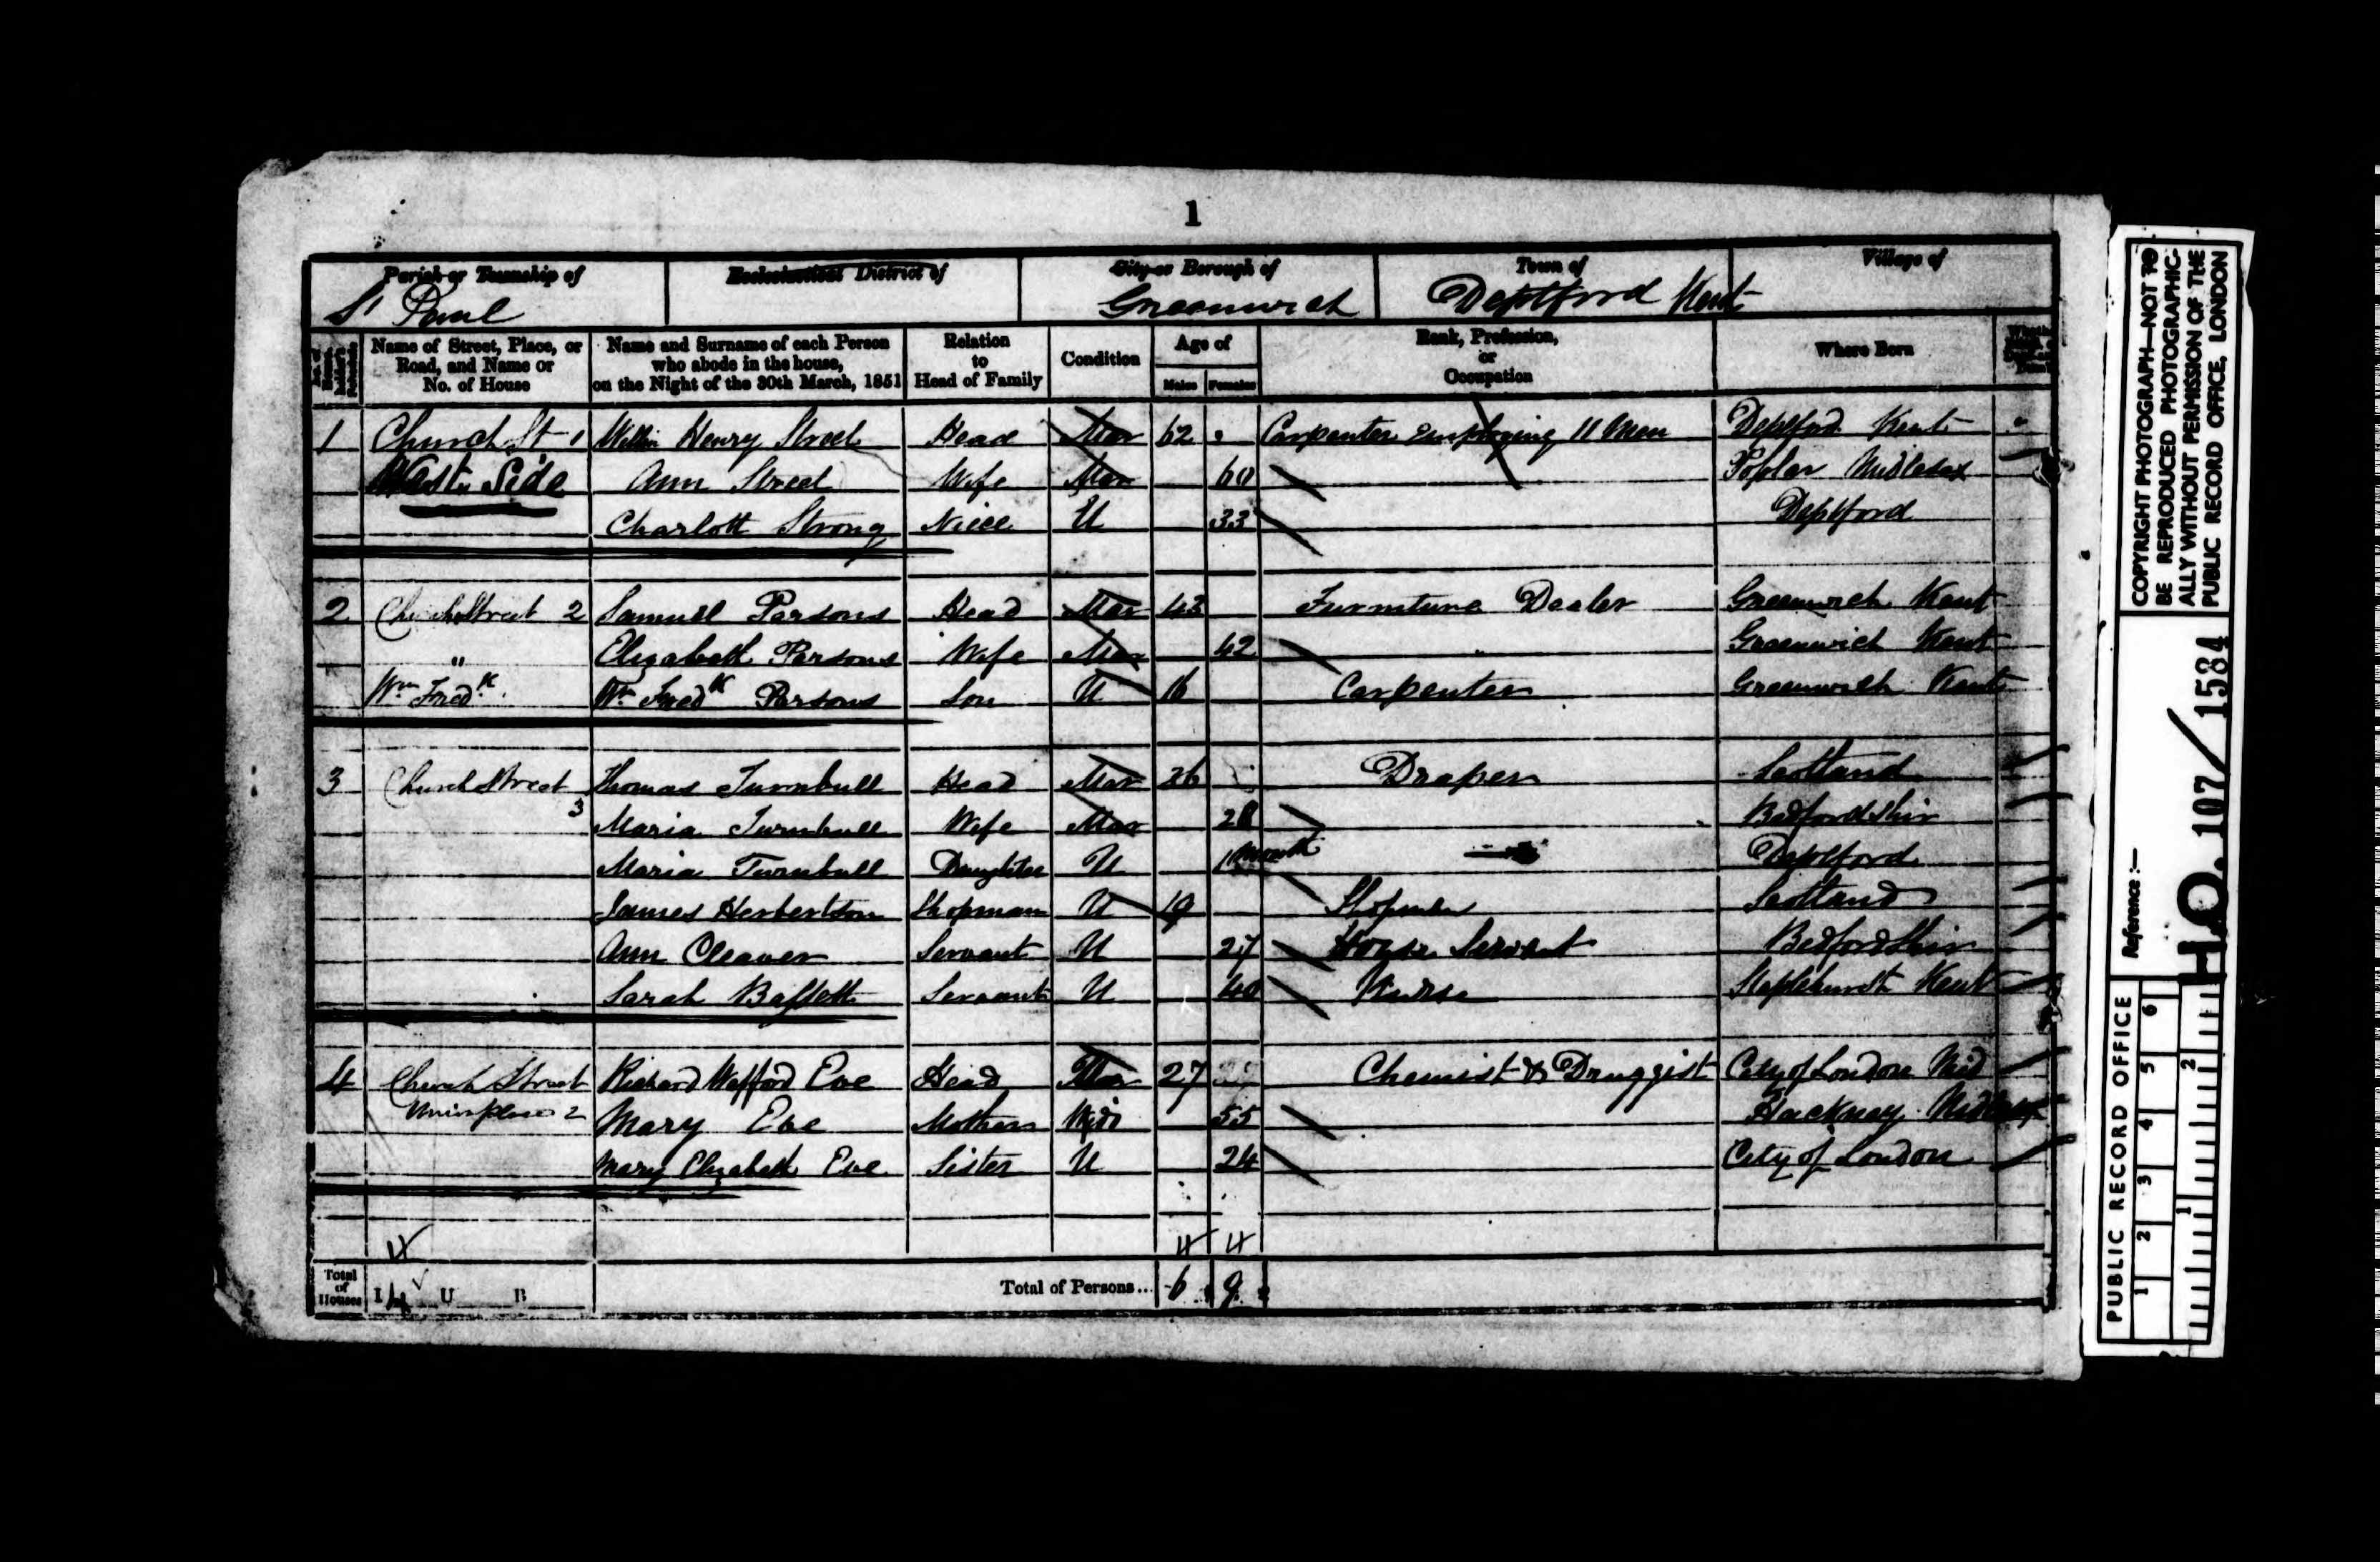 1
Parish or Township of
Ecclesiastical District of
City or Borough of
Town of
Village of
St Paul
Greenwich
Deptford Kent
Name of Street, Place, or Road, and Name or No. of House
Name and Surname of each Person who abode in the house, on the Night of the 30th March, 1851
Relation to Head of Family
Condition
Age of
Males Females
Rank, Profession, or Occupation
Where Born
1 Church St 1 Henry Street Head Mar 62 Carpenter Employing 11 Men Deptford Kent
West Side Ann Street Wife Mar 60 Poplar Midlesex
Charlott Strong Niece U 33 Deptford
2 Church Street 2 Samuel Parsons Head Mar 43 Furniture Dealer Greenwich Kent
" Elizabeth Parsons Wife Mar 42 Greenwich Kent
Wm Fredk Wm Fredk Parsons Son U 16 Carpenter Greenwich Kent
3 Church Street 3 Thomas Turnbull Head Mar 26 Draper Scotland
Maria Turnbull Wife Mar 28 Bedfordshir
Maria Turnbull Daughter U 1 Month Deptford
James Herbertson Shopman U 19 Shopman Scotland
Ann Cleaver Servant U 27 House Servant Bedfordshir
Sarah Bassett Servant U 40 Nurse Staplehurst Kent
4 Church Street Richard Eve Head Mar 27 Chemist & Druggist City of London Mid
Union place 2 Mary Eve Mother Wid 55 Hackney
Mary Elizabeth Eve Sister U 24 City of London
4 4 4
Total of Houses I 4 U B Total of Persons... 6 9
COPYRIGHT PHOTOGRAPH—NOT TO BE REPRODUCED PHOTOGRAPHICALLY WITHOUT PERMISSION OF THE PUBLIC RECORD OFFICE, LONDON
Reference:—
H.O. 107/1584
PUBLIC RECORD OFFICE
1 2 3 4 5 6
1 2